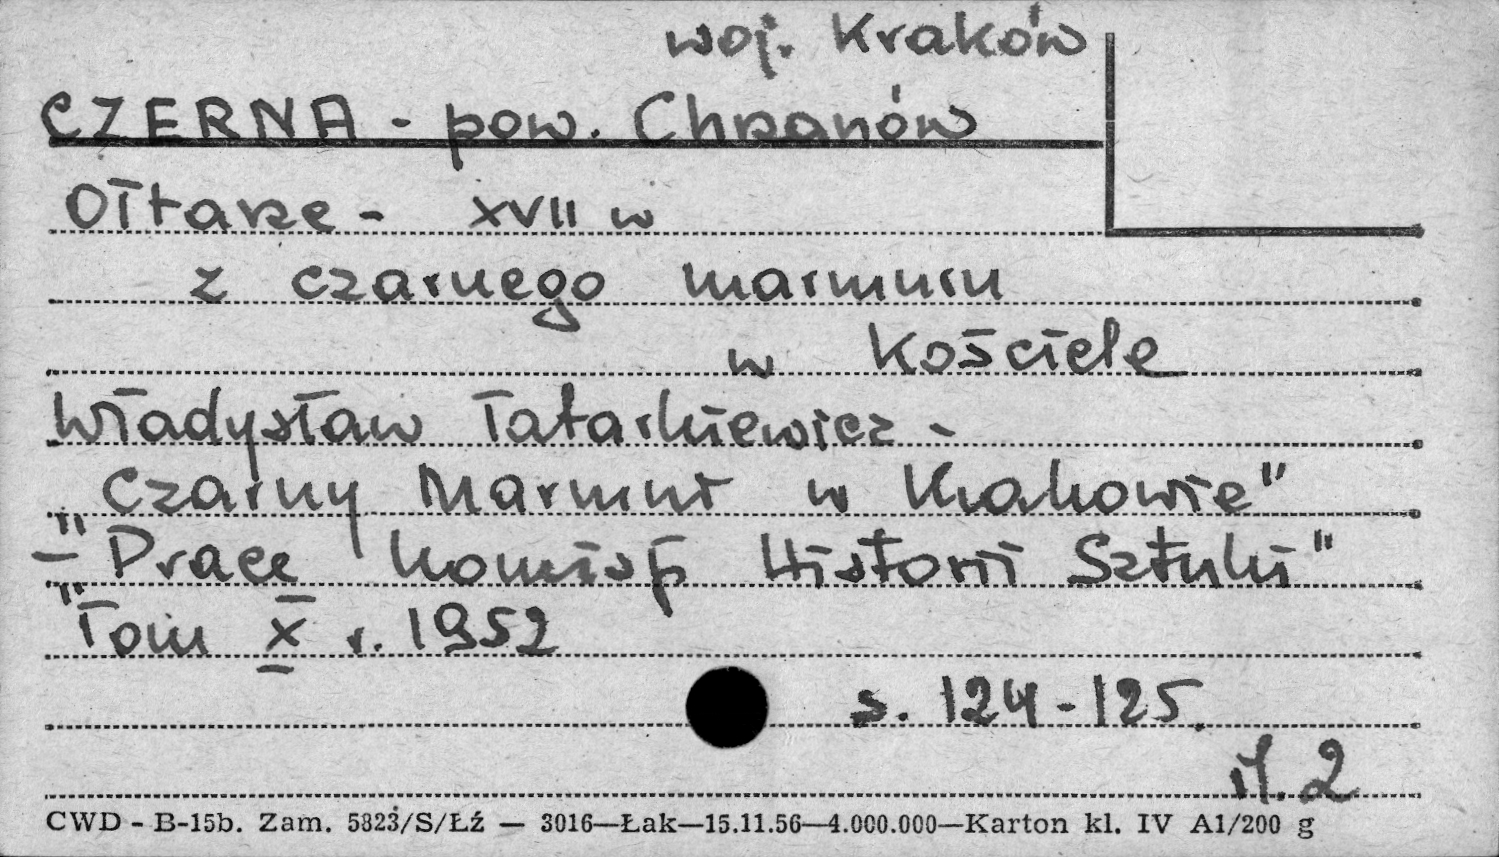 woj. Kraków
CZERNA - pow. Chrzanów
Ołtarze - XVII w
z czarnego marmuru
w Kościele
Władysław Tatarkiewicz -
"Czarny Marmur w Krakowie"
- "Prace Komisji Historii Sztuki"
Tom X r. 1952
s. 124-125.
il. 2
CWD - B-15b. Zam. 5823/S/Łź — 3016—Łak—15.11.56—4.000.000—Karton kl. IV A1/200 g